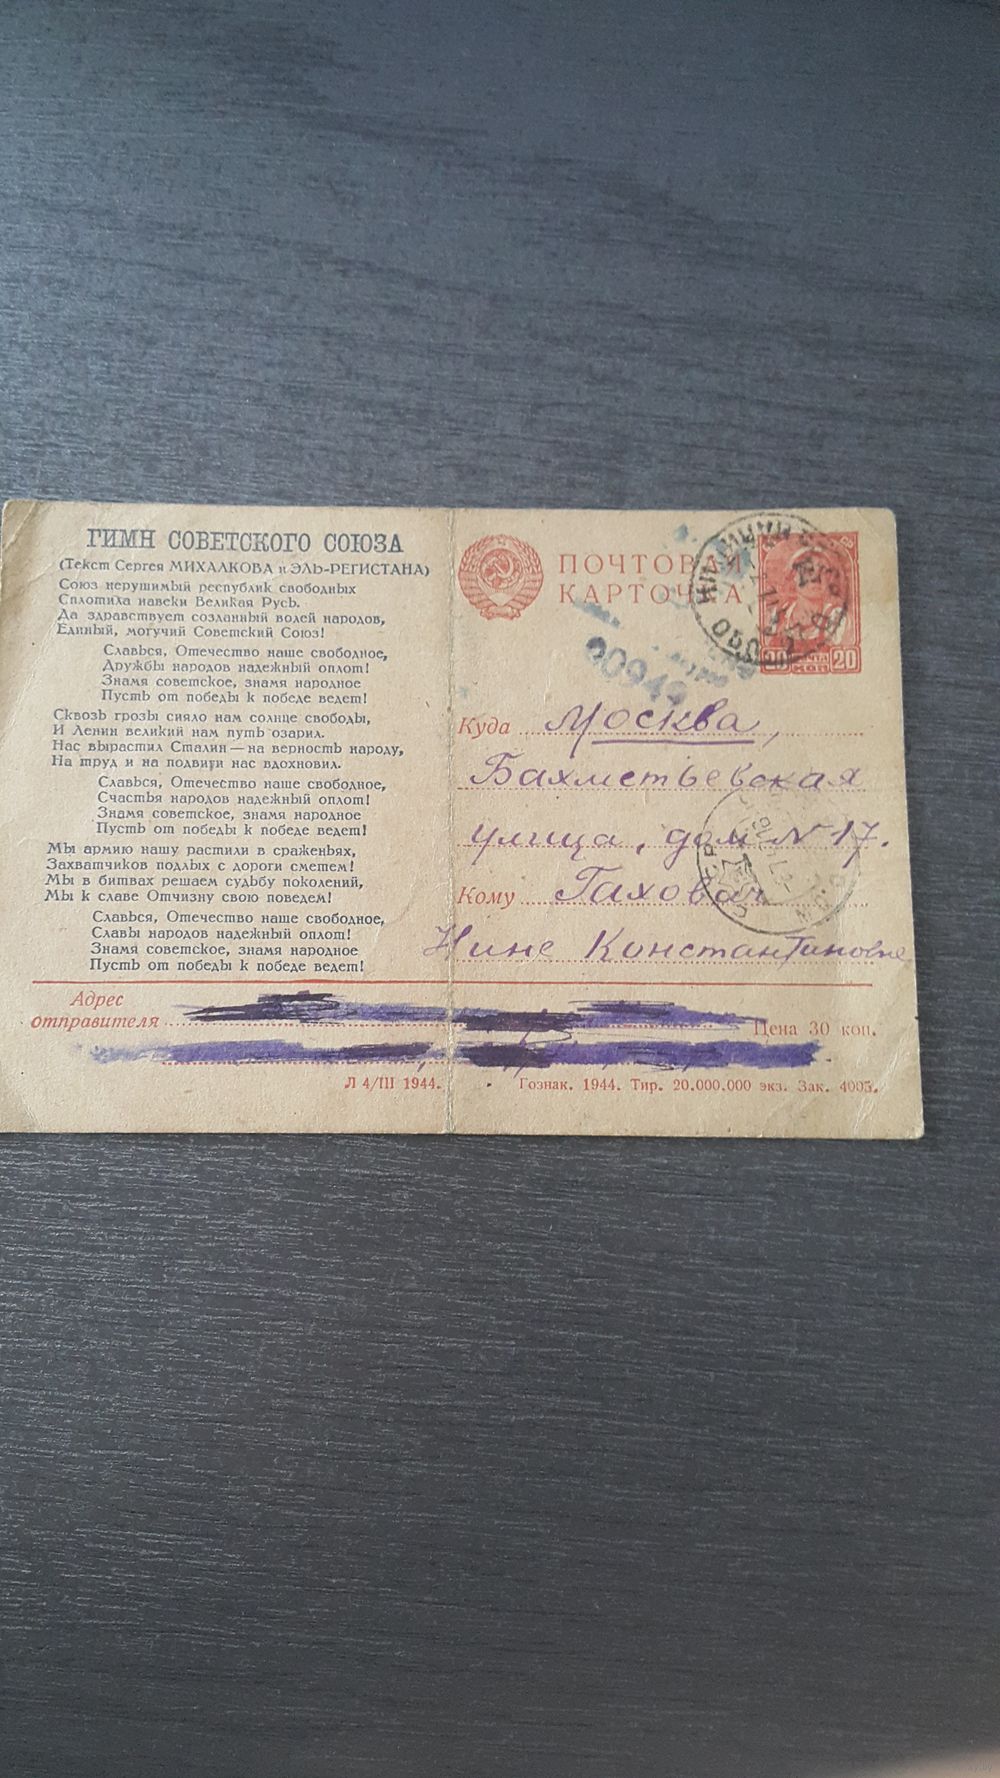 ГИМН СОВЕТСКОГО СОЮЗА
(Текст Сергея МИХАЛКОВА и ЭЛЬ-РЕГИСТАНА)
Союз нерушимый республик свободных
Сплотила навеки Великая Русь.
Да здравствует созданный волей народов,
Единый, могучий Советский Союз!
Славься, Отечество наше свободное,
Дружбы народов надежный оплот!
Знамя советское, знамя народное
Пусть от победы к победе ведет!
Сквозь грозы сияло нам солнце свободы,
И Ленин великий нам путь озарил.
Нас вырастил Сталин — на верность народу,
На труд и на подвиги нас вдохновил.
Славься, Отечество наше свободное,
Счастья народов надежный оплот!
Знамя советское, знамя народное
Пусть от победы к победе ведет!
Мы армию нашу растили в сраженьях,
Захватчиков подлых с дороги сметем!
Мы в битвах решаем судьбу поколений,
Мы к славе Отчизну свою поведем!
Славься, Отечество наше свободное,
Славы народов надежный оплот!
Знамя советское, знамя народное
Пусть от победы к победе ведет!
ПОЧТОВАЯ
КАРТОЧКА
20 КОП 20
00949
Куда Москва,
Бахметьевская
улица, дом № 17.
Кому
Нине Константиновне
Адрес
отправителя
Цена 30 коп.
Л 4/III 1944.
Гознак. 1944. Тир. 20.000.000 экз. Зак. 4005.